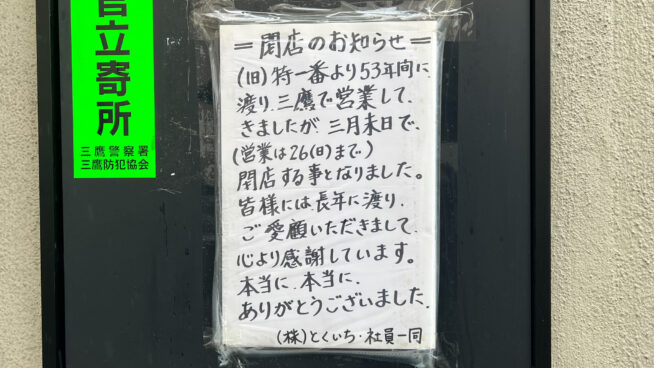 官立寄所
三鷹警察署
三鷹防犯協会
＝閉店のお知らせ＝
(旧)特一番より53年間に
渡り、三鷹で営業して、
きましたが、三月末日で、
(営業は26(日)まで)
閉店する事となりました。
皆様には長年に渡り、
ご愛顧いただきまして、
心より感謝しています。
本当に、本当に、
ありがとうございました。
(株)とくいち・社員一同